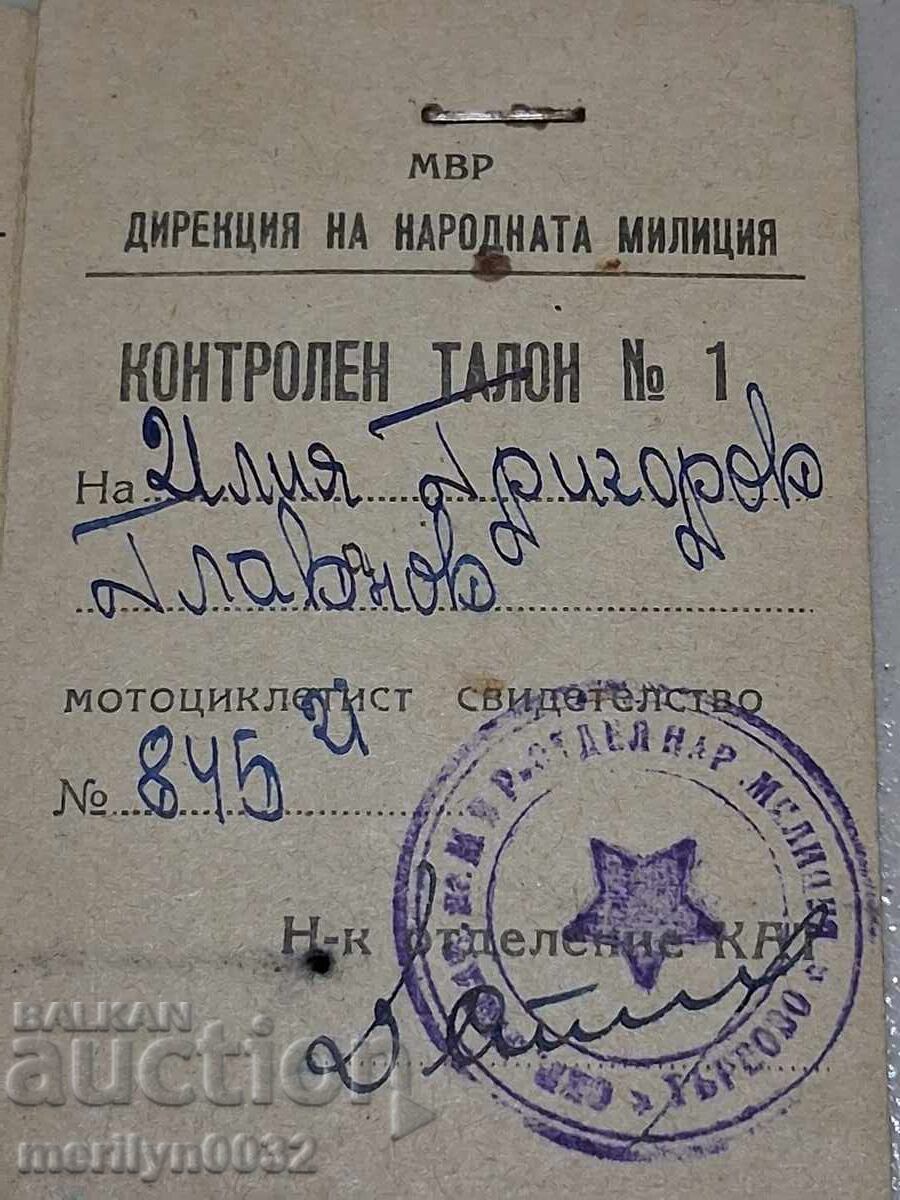 МВР
ДИРЕКЦИЯ НА НАРОДНАТА МИЛИЦИЯ
КОНТРОЛЕН ТАЛОН № 1
На Илия Григоров
Главчов
мотоциклетист свидетелство
№ 845 И
Н-к отделение КАТ
ОТДЕЛ НАР. МИЛИЦИЯ
ТЪРГОВО
BALKAN
auction
merilyn0032